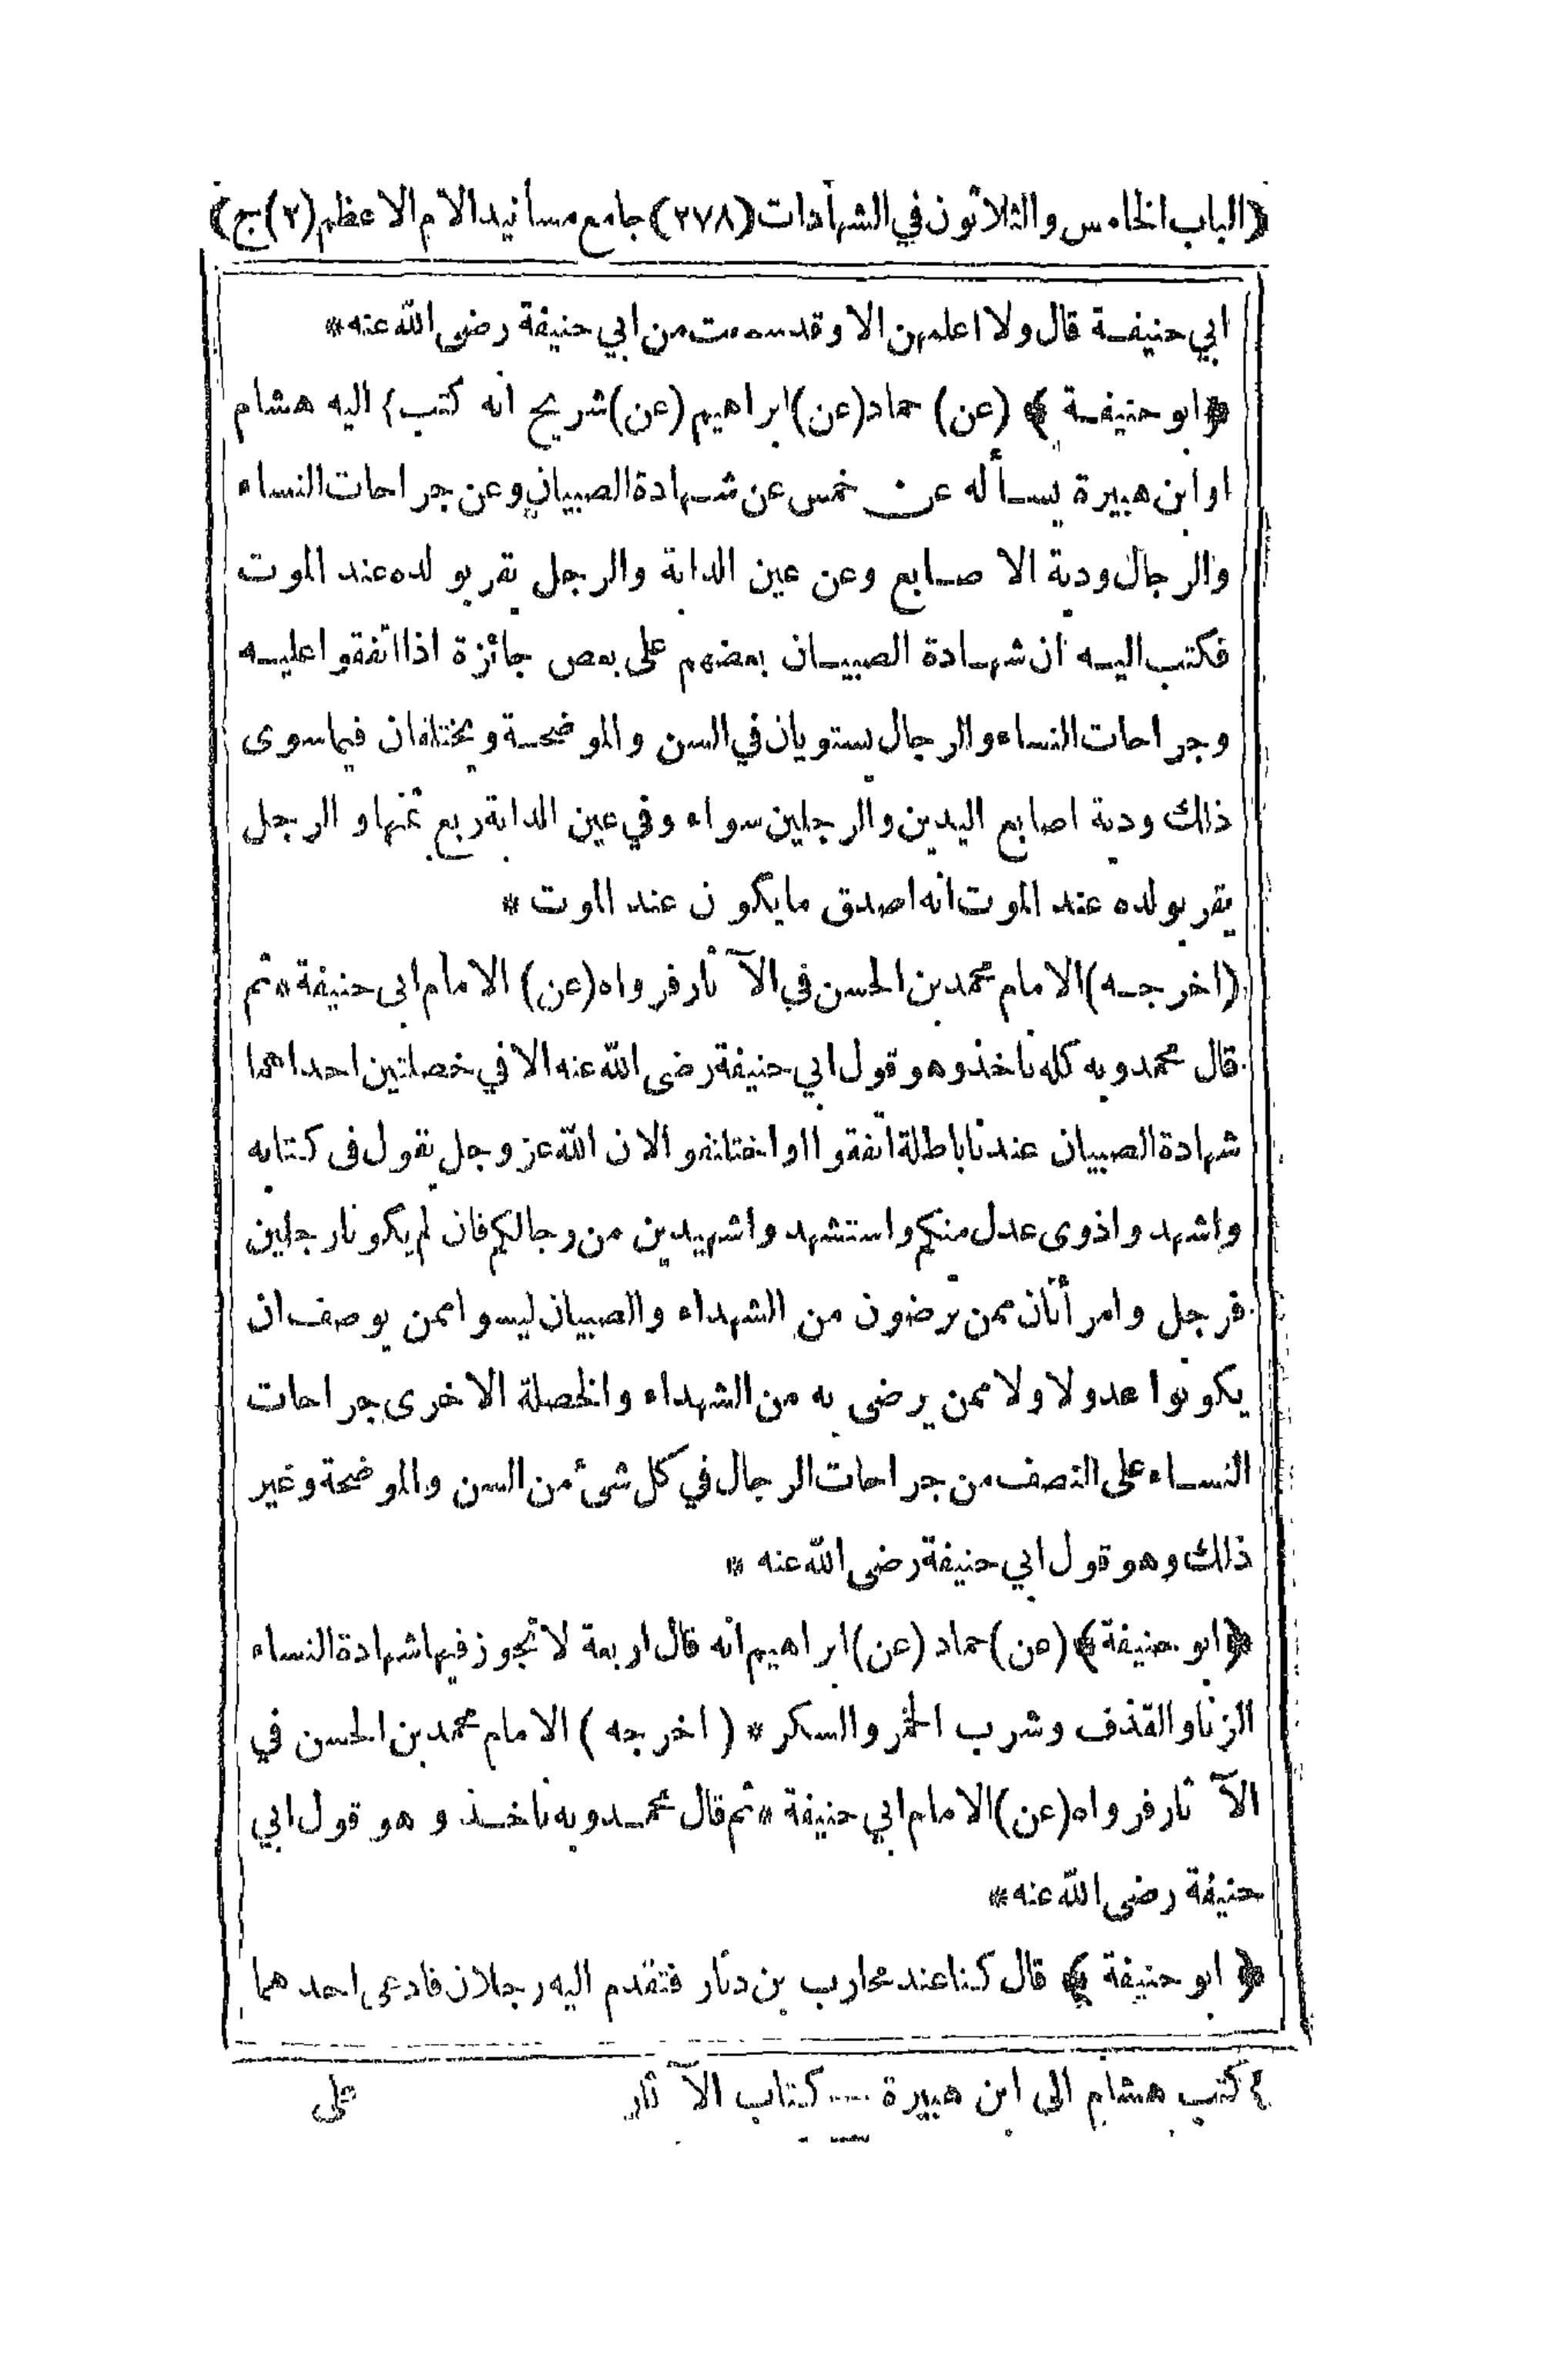 ﴿الباب الخامس والثلاثون في الشهادات (٢٧٨) جامع مسانيد الامام الاعظم (٢) ج﴾
ابي حنيفة قال ولا اعلمهن الا وقد سمعت من ابي حنيفة رضى الله عنه *
﴿ابو حنيفة﴾ (عن) حماد (عن) ابراهيم (عن) شريح انه كتب } اليه هشام
او ابن هبيرة يسأله عن خمس عن شهادة الصبيان وعن جراحات النساء
والرجال ودية الاصابع وعن عين الدابة والرجل يقر بولده عند الموت
فكتب اليه ان شهادة الصبيان بعضهم على بعض جائزة اذا اتفقوا عليه
وجراحات النساء والرجال يستويان في السن والموضحة ويختلفان فيما سوى
ذلك ودية اصابع اليدين والرجلين سواء وفي عين الدابة ربع ثمنها والرجل
يقر بولده عند الموت انه اصدق ما يكون عند الموت *
(اخرجه) الامام محمد بن الحسن في الآثار فرواه (عن) الامام ابى حنيفة * ثم
قال محمد وبه كله نأخذ وهو قول ابي حنيفة رضى الله عنه الا في خصلتين احداهما
شهادة الصبيان عندنا باطلة اتفقوا او اختلفوا لان الله عز وجل يقول فى كتابه
واشهدوا ذوى عدل منكم واستشهدوا شهيدين من رجالكم فان لم يكونا رجلين
فرجل وامرأتان ممن ترضون من الشهداء والصبيان ليسوا ممن يوصف ان
يكونوا عدولا ولا ممن يرضى به من الشهداء والخصلة الاخرى جراحات
النساء على النصف من جراحات الرجال في كل شئ من السن والموضحة وغير
ذلك وهو قول ابي حنيفة رضى الله عنه *
﴿ابو حنيفة﴾ (عن) حماد (عن) ابراهيم انه قال اربعة لا تجوز فيها شهادة النساء
الزنا والقذف وشرب الخمر والسكر * (اخرجه) الامام محمد بن الحسن في
الآثار فرواه (عن) الامام ابي حنيفة * ثم قال محمد وبه نأخذ وهو قول ابي
حنيفة رضى الله عنه *
﴿ابو حنيفة﴾ قال كنا عند محارب بن دثار فتقدم اليه رجلان فادعى احدهما
} كتب هشام الى ابن هبيرة ---- كتاب الآثار
على